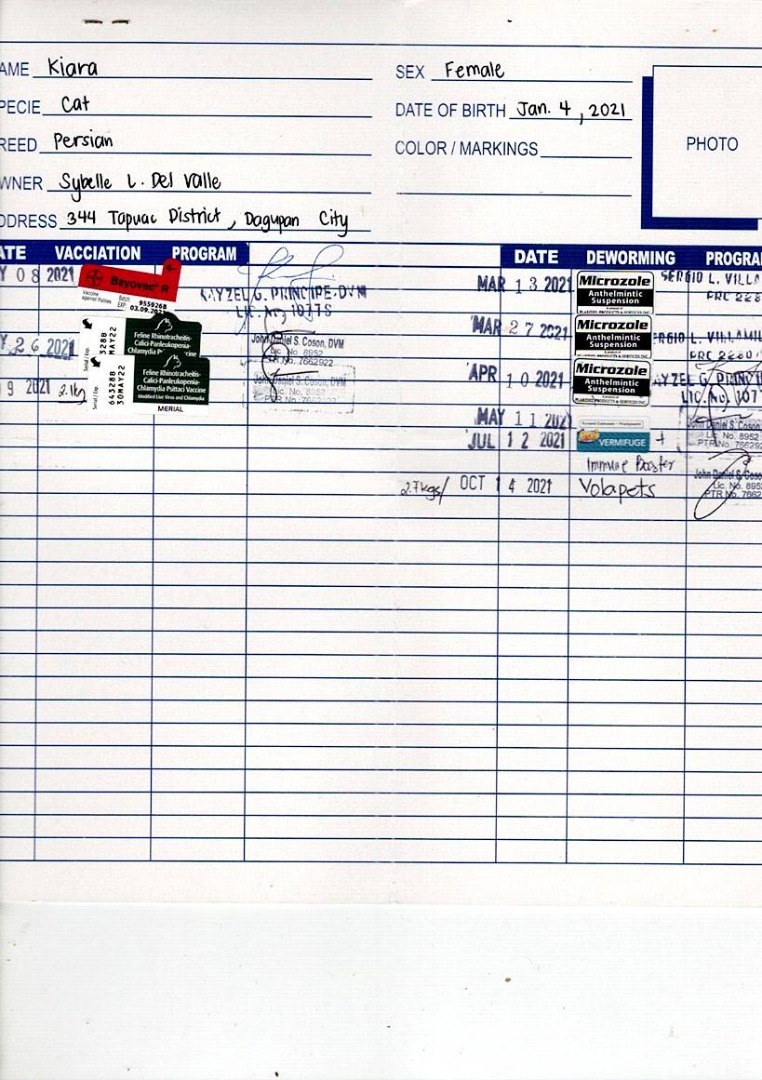 AME Kiara
PECIE Cat
REED Persian
WNER Sybelle L. Del Valle
DDRESS 344 Tapuac District, Dagupan City
SEX Female
DATE OF BIRTH Jan. 4, 2021
COLOR / MARKINGS
PHOTO
ATE VACCIATION PROGRAM
Y 08 2021 Bayovac® R
Vaccine against Rabies
Batch EXP.
KAYZEL G. PRINCIPE, DVM
Y 26 2021
328B
MAY22
Feline Rhinotracheitis-
Calici-Panleukopenia-
John Daniel S. Coson, DVM
Lic. No. 8952
PTR No. 7662922
9 2021 2.1kg
Serial / Exp.
64328B
30MAY22
Feline Rhinotracheitis-
Calici-Panleukopenia-
Chlamydia Psittaci Vaccine
Modified Live Virus and Chlamydia
MERIAL
John Daniel S. Coson, DVM
Lic. No. 8952
PTR No. 7662922
DATE DEWORMING PROGRA
MAR 13 2021 Microzole
Anthelmintic
Suspension
SERGIO L. VILLA
MAR 27 2021 Microzole
Anthelmintic
Suspension
ERGIO L. VILLAMIL
APR 10 2021 Microzole
Anthelmintic
Suspension
AYZEL G. PRINCIP
MAY 11 2021
John Daniel S. Coson
Lic. No. 8952
PTR No. 766292
JUL 12 2021 VERMIFUGE +
Immune Booster
2.7kgs/ OCT 14 2021 Volapets
John Daniel S. Coso
Lic. No. 895
PTR No. 7662